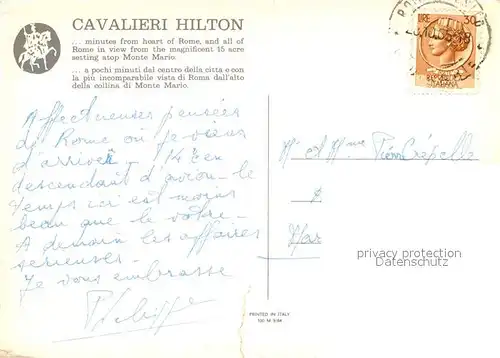 CAVALIERI HILTON
... minutes from heart of Rome, and all of
Rome in view from the magnificent 15 acre
setting atop Monte Mario.
... a pochi minuti dal centro della città e con
la più incomparabile vista di Roma dall'alto
della collina di Monte Mario.
LIRE 30
ITALIANA
Affectueuses pensées
de Rome où je viens
d'arriver - 14° en
descendant d'avion - le
temps ici est moins
beau que le votre -
A demain les affaires
sérieuses -
Je vous embrasse
Mr et Mme
privacy protection
Datenschutz
PRINTED IN ITALY